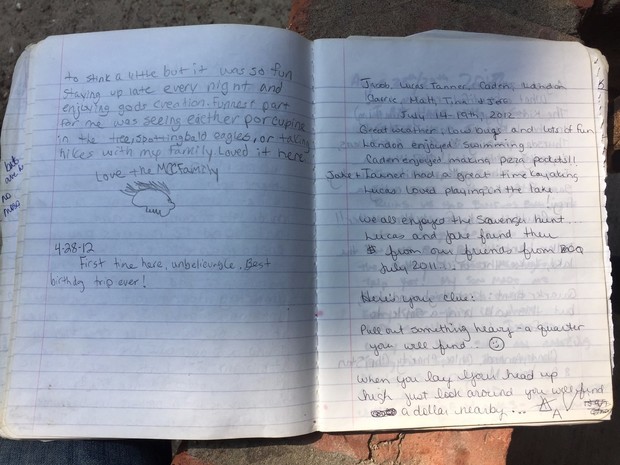 to stink a little but it was so fun
staying up late every night and
enjoying gods creation. Funnest part
for me was seeing either porcupine
in the tree, spotting bald eagles, or taking
hikes with my family Loved it here
Love the Family
4-28-12
First time here, unbelievable. Best
birthdy trip ever!
Jacob, Lucas Tanner, Caden, Landon
Matt, Tina &
July 14-19th, 2012
Great weather, low bugs and lots of fun
Landon enjoyed swimming.
Caden enjoyed making peza pockets!!
Jake + Tanner had a great time kayaking
Lucas loved playing in the lake!
We all enjoyed the Scavenger hunt...
Lucas and Jake found their
$ from our friends from
July 2011...
Here's your clue:
Pull out something heavy - a quarter
you will find.
When you lay your head up
high just look around you will find
a dollar nearby...